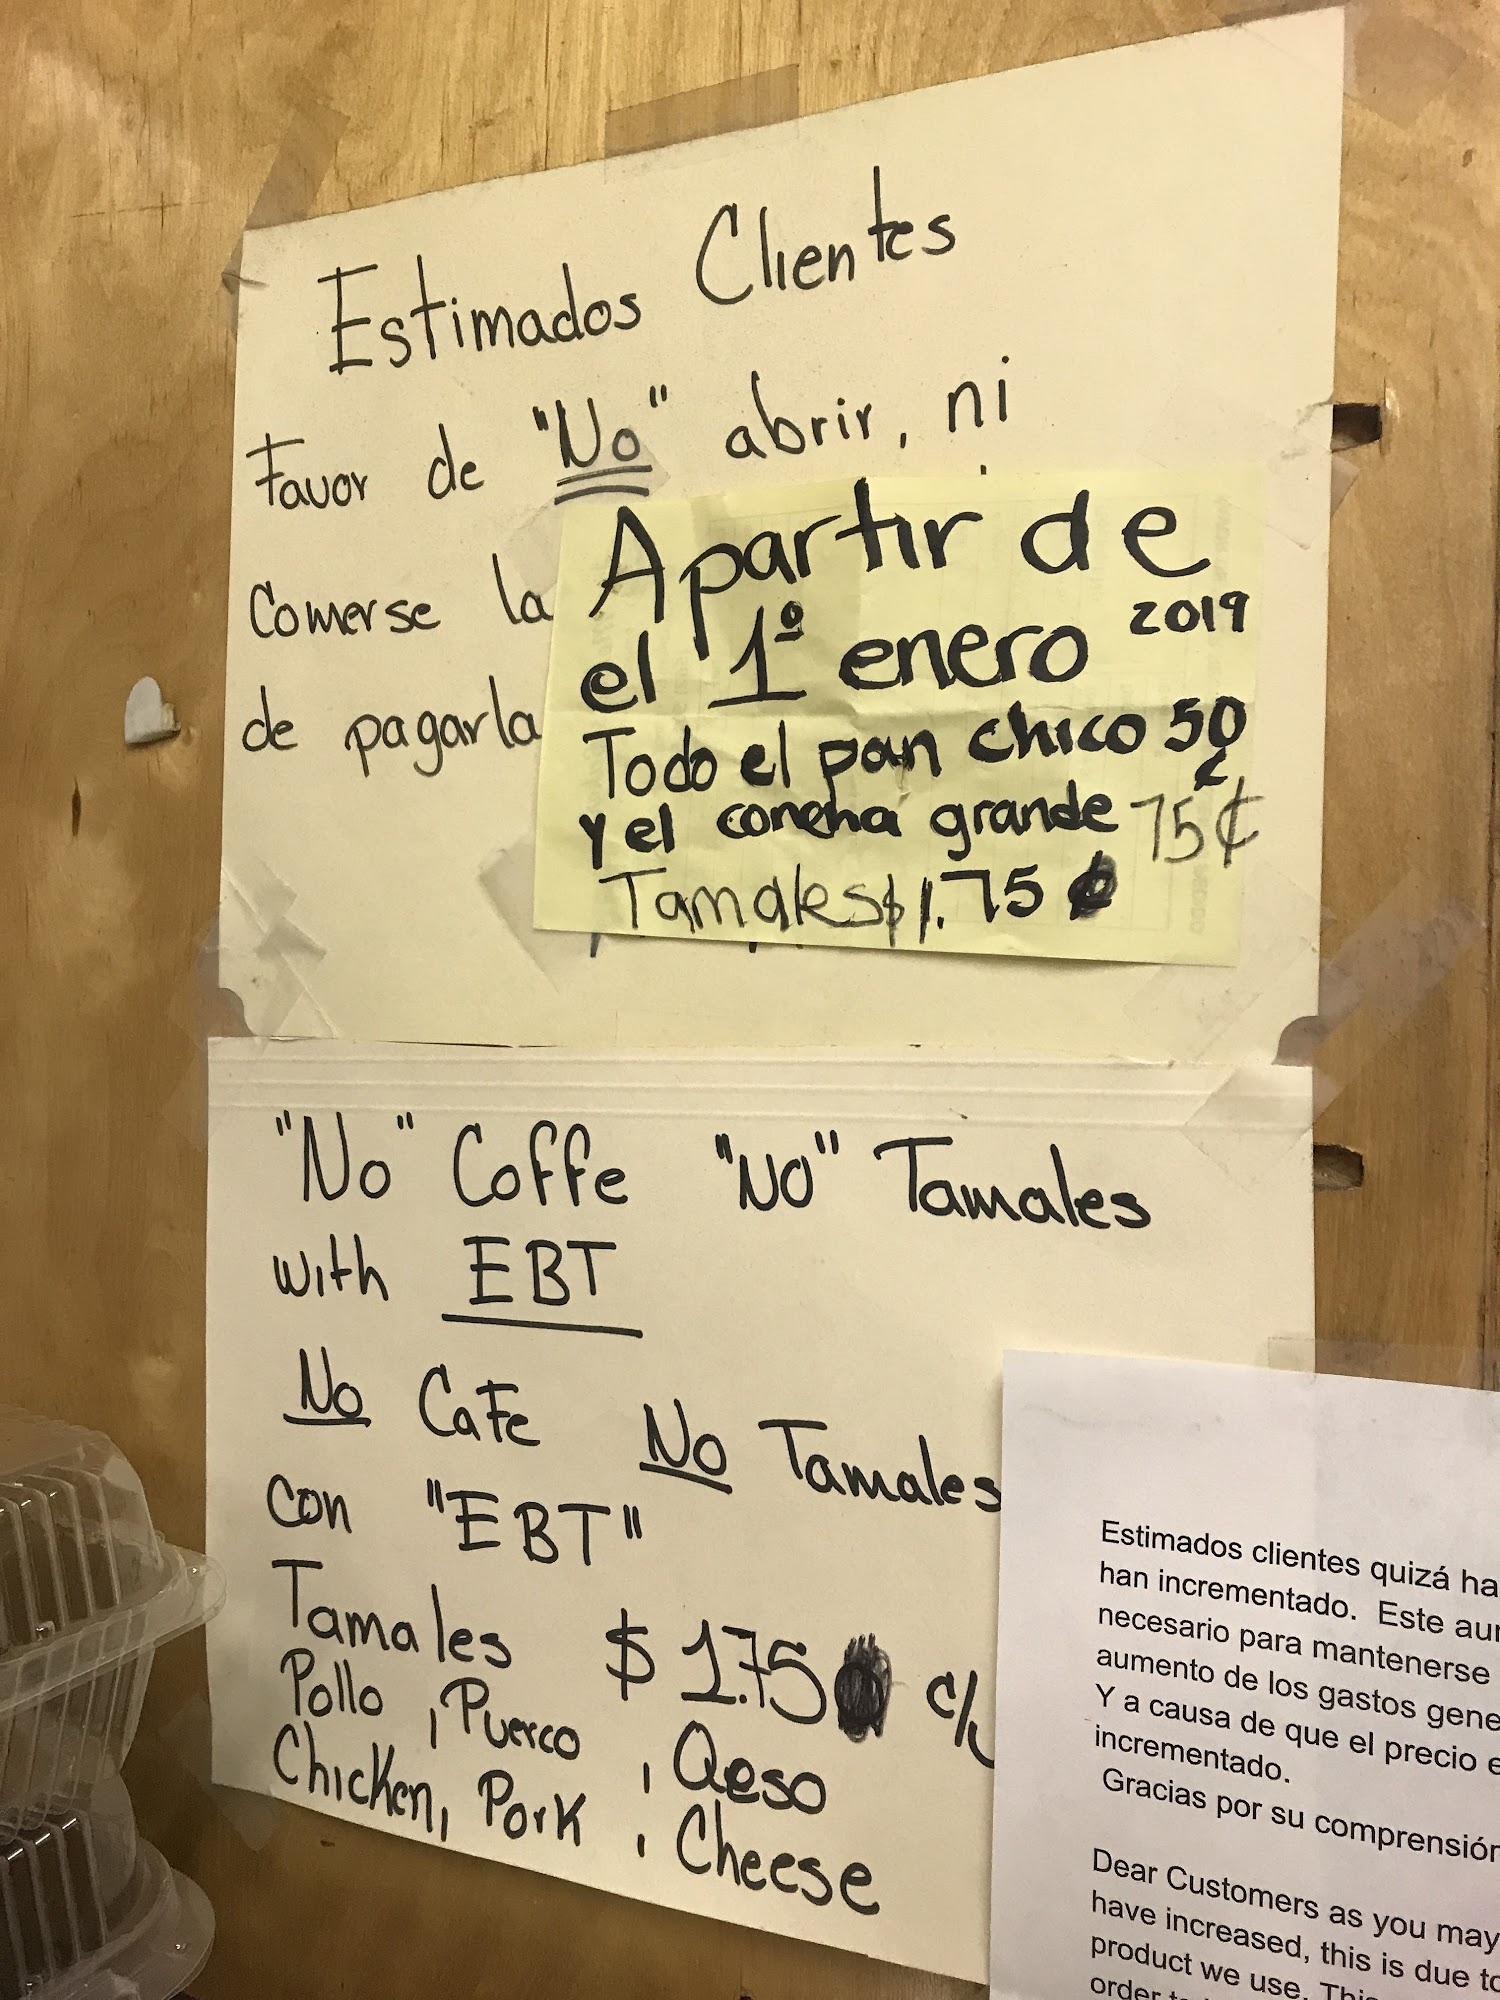 Estimados Clientes
Favor de "No" abrir, ni
Comerse la
de pagarla
Apartir de
el 1º enero 2019
Todo el pan chico 50
¢
y el concha grande 75¢
Tamales $1.75
"No" Coffe "NO" Tamales
with EBT
No Cafe No Tamales
con "EBT"
Tamales $1.75 c/u
Pollo, Puerco, Qeso
Chicken, Pork, Cheese
Estimados clientes quizá ha
han incrementado. Este au
necesario para mantenerse
aumento de los gastos gene
Y a causa de que el precio e
incrementado.
Gracias por su comprensión
Dear Customers as you may
have increased, this is due to
product we use. This
order